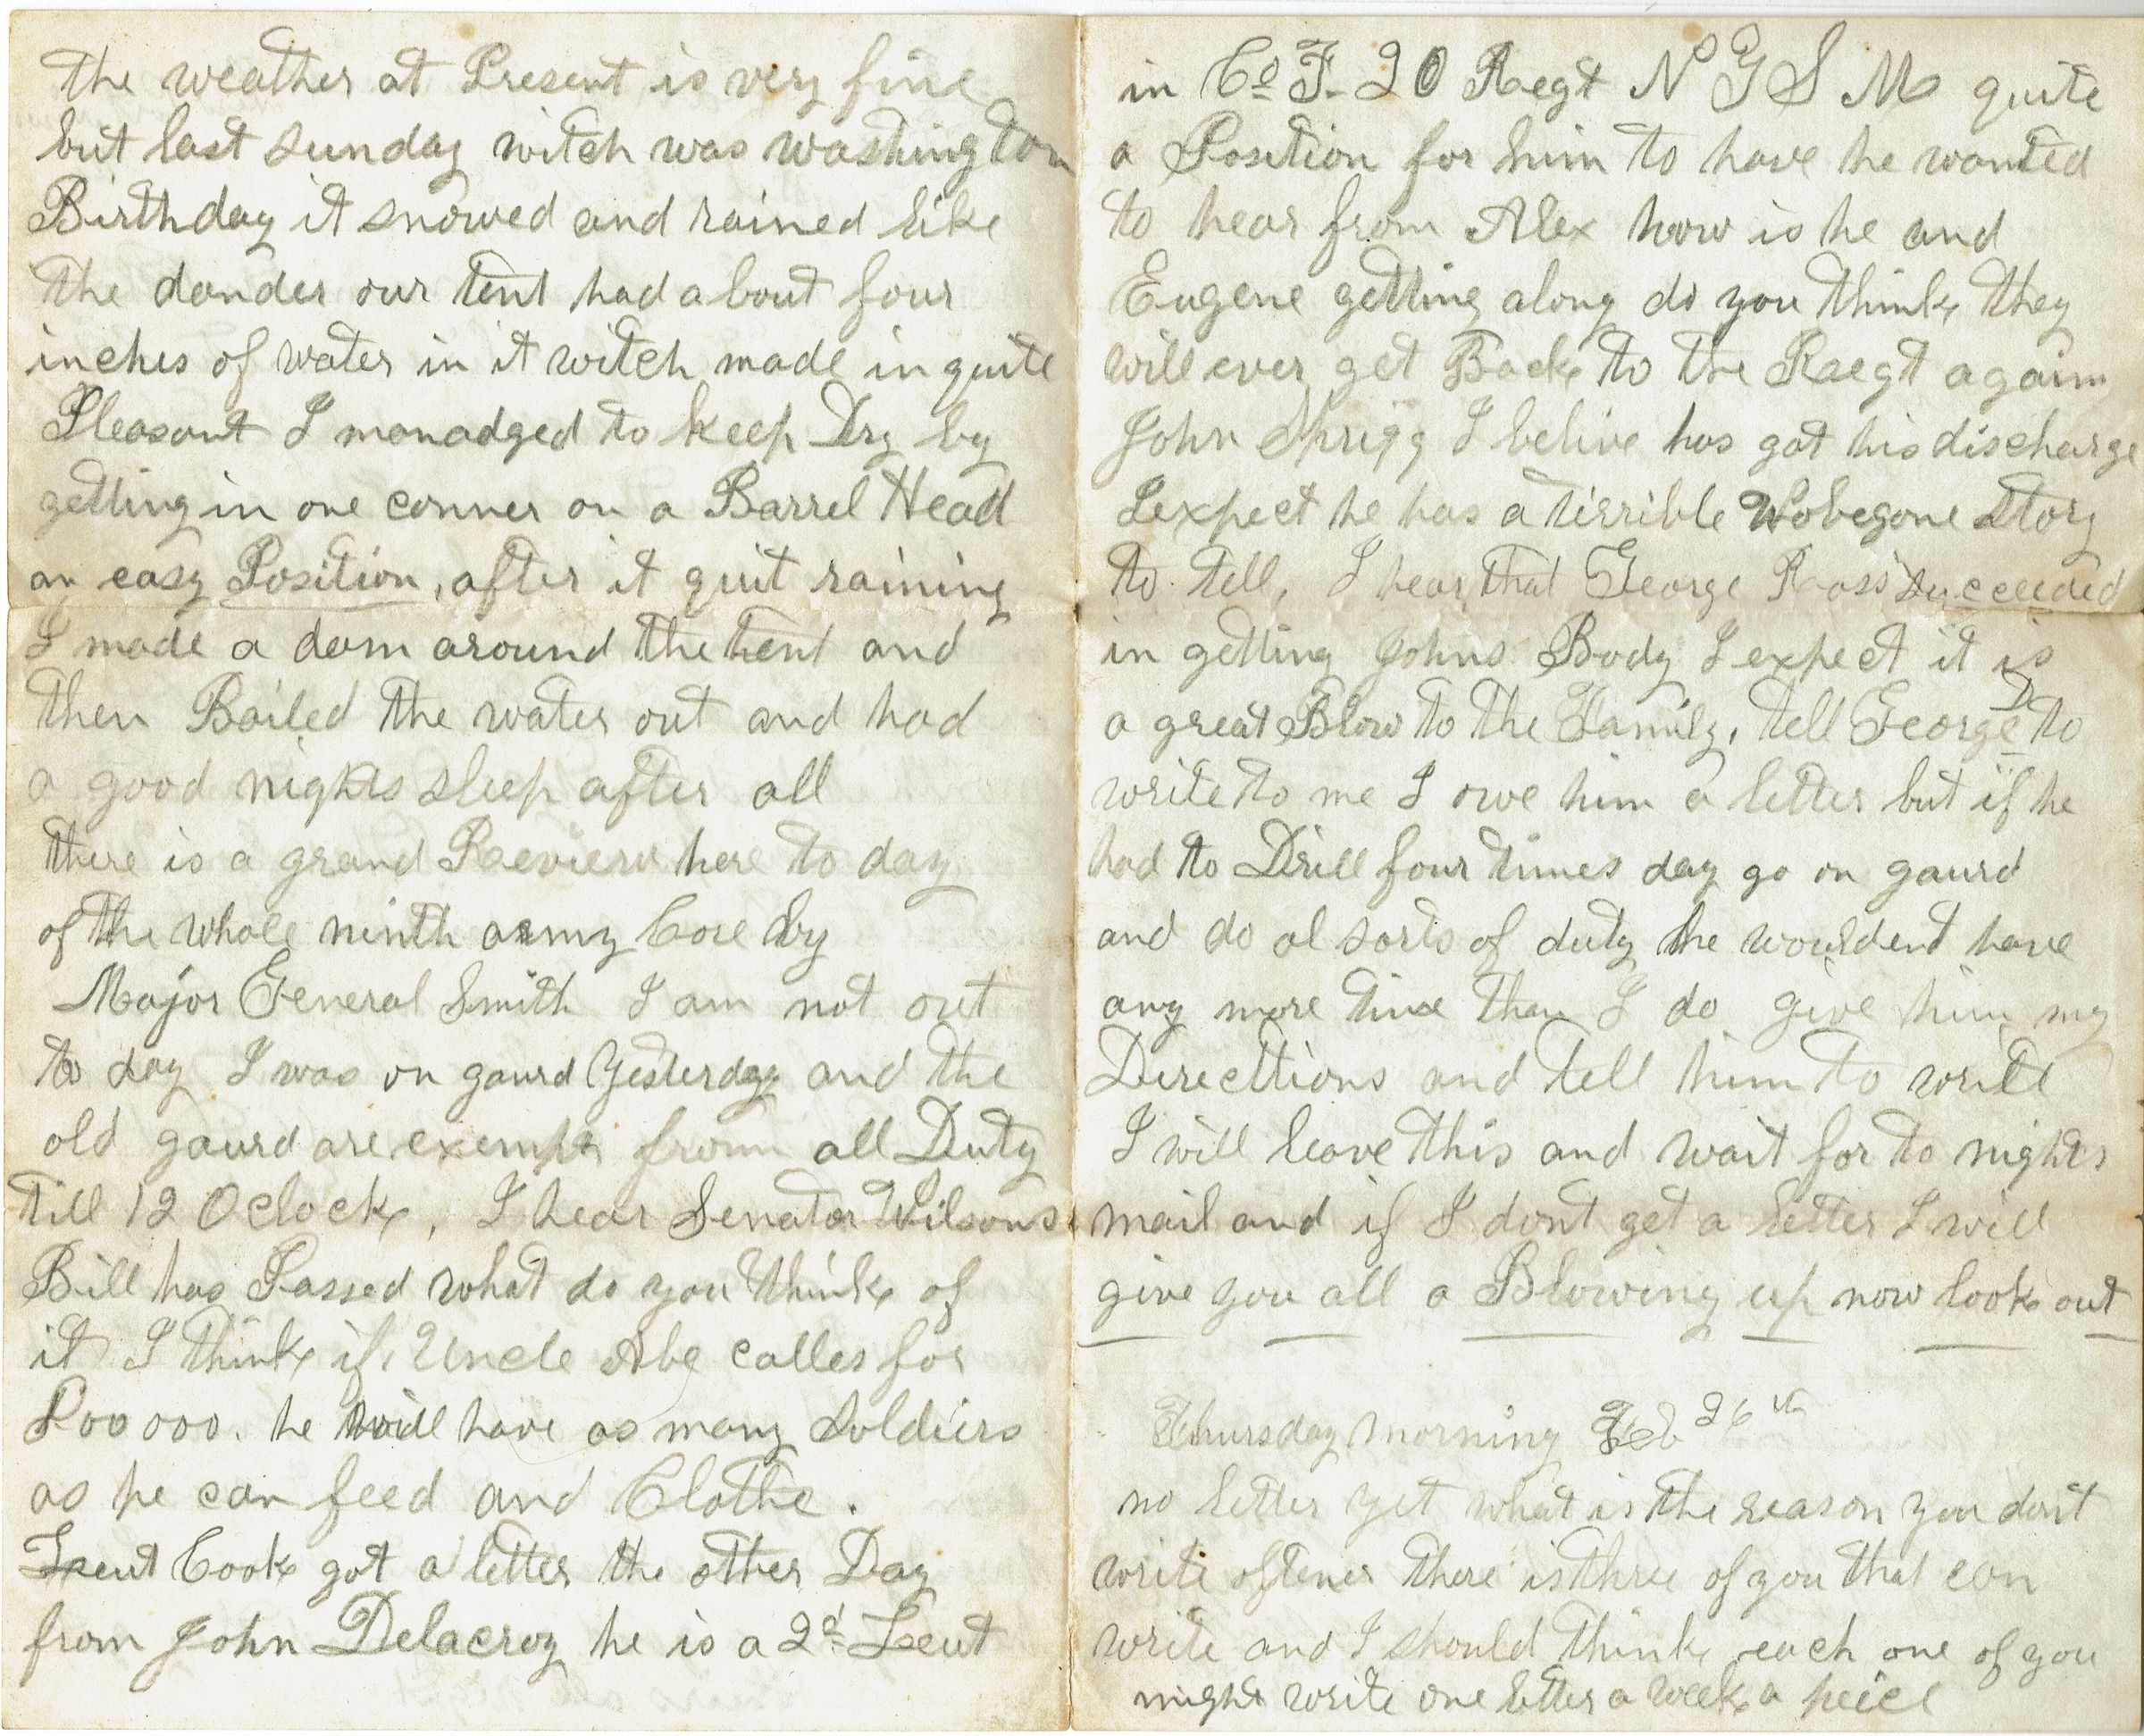 the weather at Present is very fine
but last sunday witch was washington
Birthday it snowed and rained like
the dander our tent had about four
inches of water in it witch made in quite
Pleasant I manadged to keep Dry by
getting in one conner on a Barrel Head
an easy Position, after it quit raining
I made a dam around the tent and
then Bailed the water out and had
a good nights sleep after all
there is a grand Reevieru here to day
of the whole ninth army Core by
Major General Smith I am not out
to day I was on gaurd Yesterday and the
old gaurd are exempt from all Duty
till 12 O clock, I hear Senator Wilsons
Bill has Passed what do you think of
it I think if Uncle Abe calles for
800 000. he will have as many soldiers
as he can feed and Clothe.
Leut Cook got a letter the other Day
from John Delacroy he is a 2d Leut
in Co F- 20 Regt N G S M quite
a Position for him to have he wanted
to hear from Alex how is he and
Eugene getting along do you think they
will ever get Back to the Raegt again
John Sprigg I belive has got his discharge
I expect he has a tirrible Wobegone story
to tell, I hear that George Ross succeeded
in getting Johns Body I expect it is
a great Blow to the Family, tell George D to
write to me I owe him a letter but if he
had to Drill four times day go on gaurd
and do al sorts of duty he wouldent have
any more time than I do give him my
Directtions and tell him to write
I will leave this and wait for to nights
mail and if I dont get a letter I will
give you all a Blowing up now look out
Thursday morning Feb 26th
no letter yet what is the reason you dont
write oftener there is three of you that can
write and I should think each one of you
might write one letter a week a peice